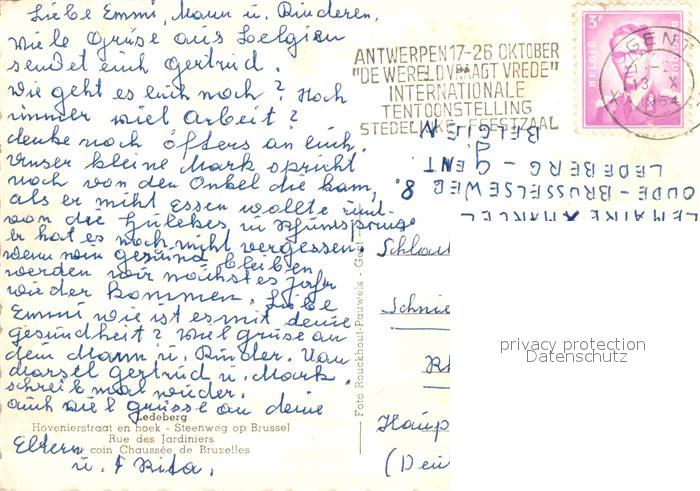 Liebe Emmi, Mann u. Kinderen,
Viele Grüse aus Belgien
sendet euch Gertrud.
Wie geht es euch noch? Noch
immer viel arbeit?
denke noch öfters an euch.
Unser kleine Mark spricht
noch von den Onkel die kam,
als er niht Essen wollte und
von die
er hat es noch niht vergessen.
Wenn wir gesund bleiben
werden wir nächstes Jahr
wieder kommen. Liebe
Emmi wie ist es mit deine
gesundheit? Viel grüse an
dem Mann u. Kinder. Van
Marsel gertrud u. Mark.
schreib mal wieder.
auch viel grüsse an deine
Eltern
u. Rita.
Ledeberg
Hovenierstraat en hoek - Steenweg op Brussel
Rue des Jardiniers
coin Chaussée de Bruxelles
Foto Rouckhout-Pauweis - Gent
ANTWERPEN 17-26 OKTOBER
"DE WERELD VRAAGT VREDE"
INTERNATIONALE
TENTOONSTELLING
STEDELIJKE FEESTZAAL
3F
BELGIE
BELGIQUE
LEMAIRE MARCEL
OUDE-BRUSSELSEWEG 8.
LEDEBERG - GENT
BELGIEN
Schlau
Schnie
Rh
Haup
(Deu
privacy protection
Datenschutz